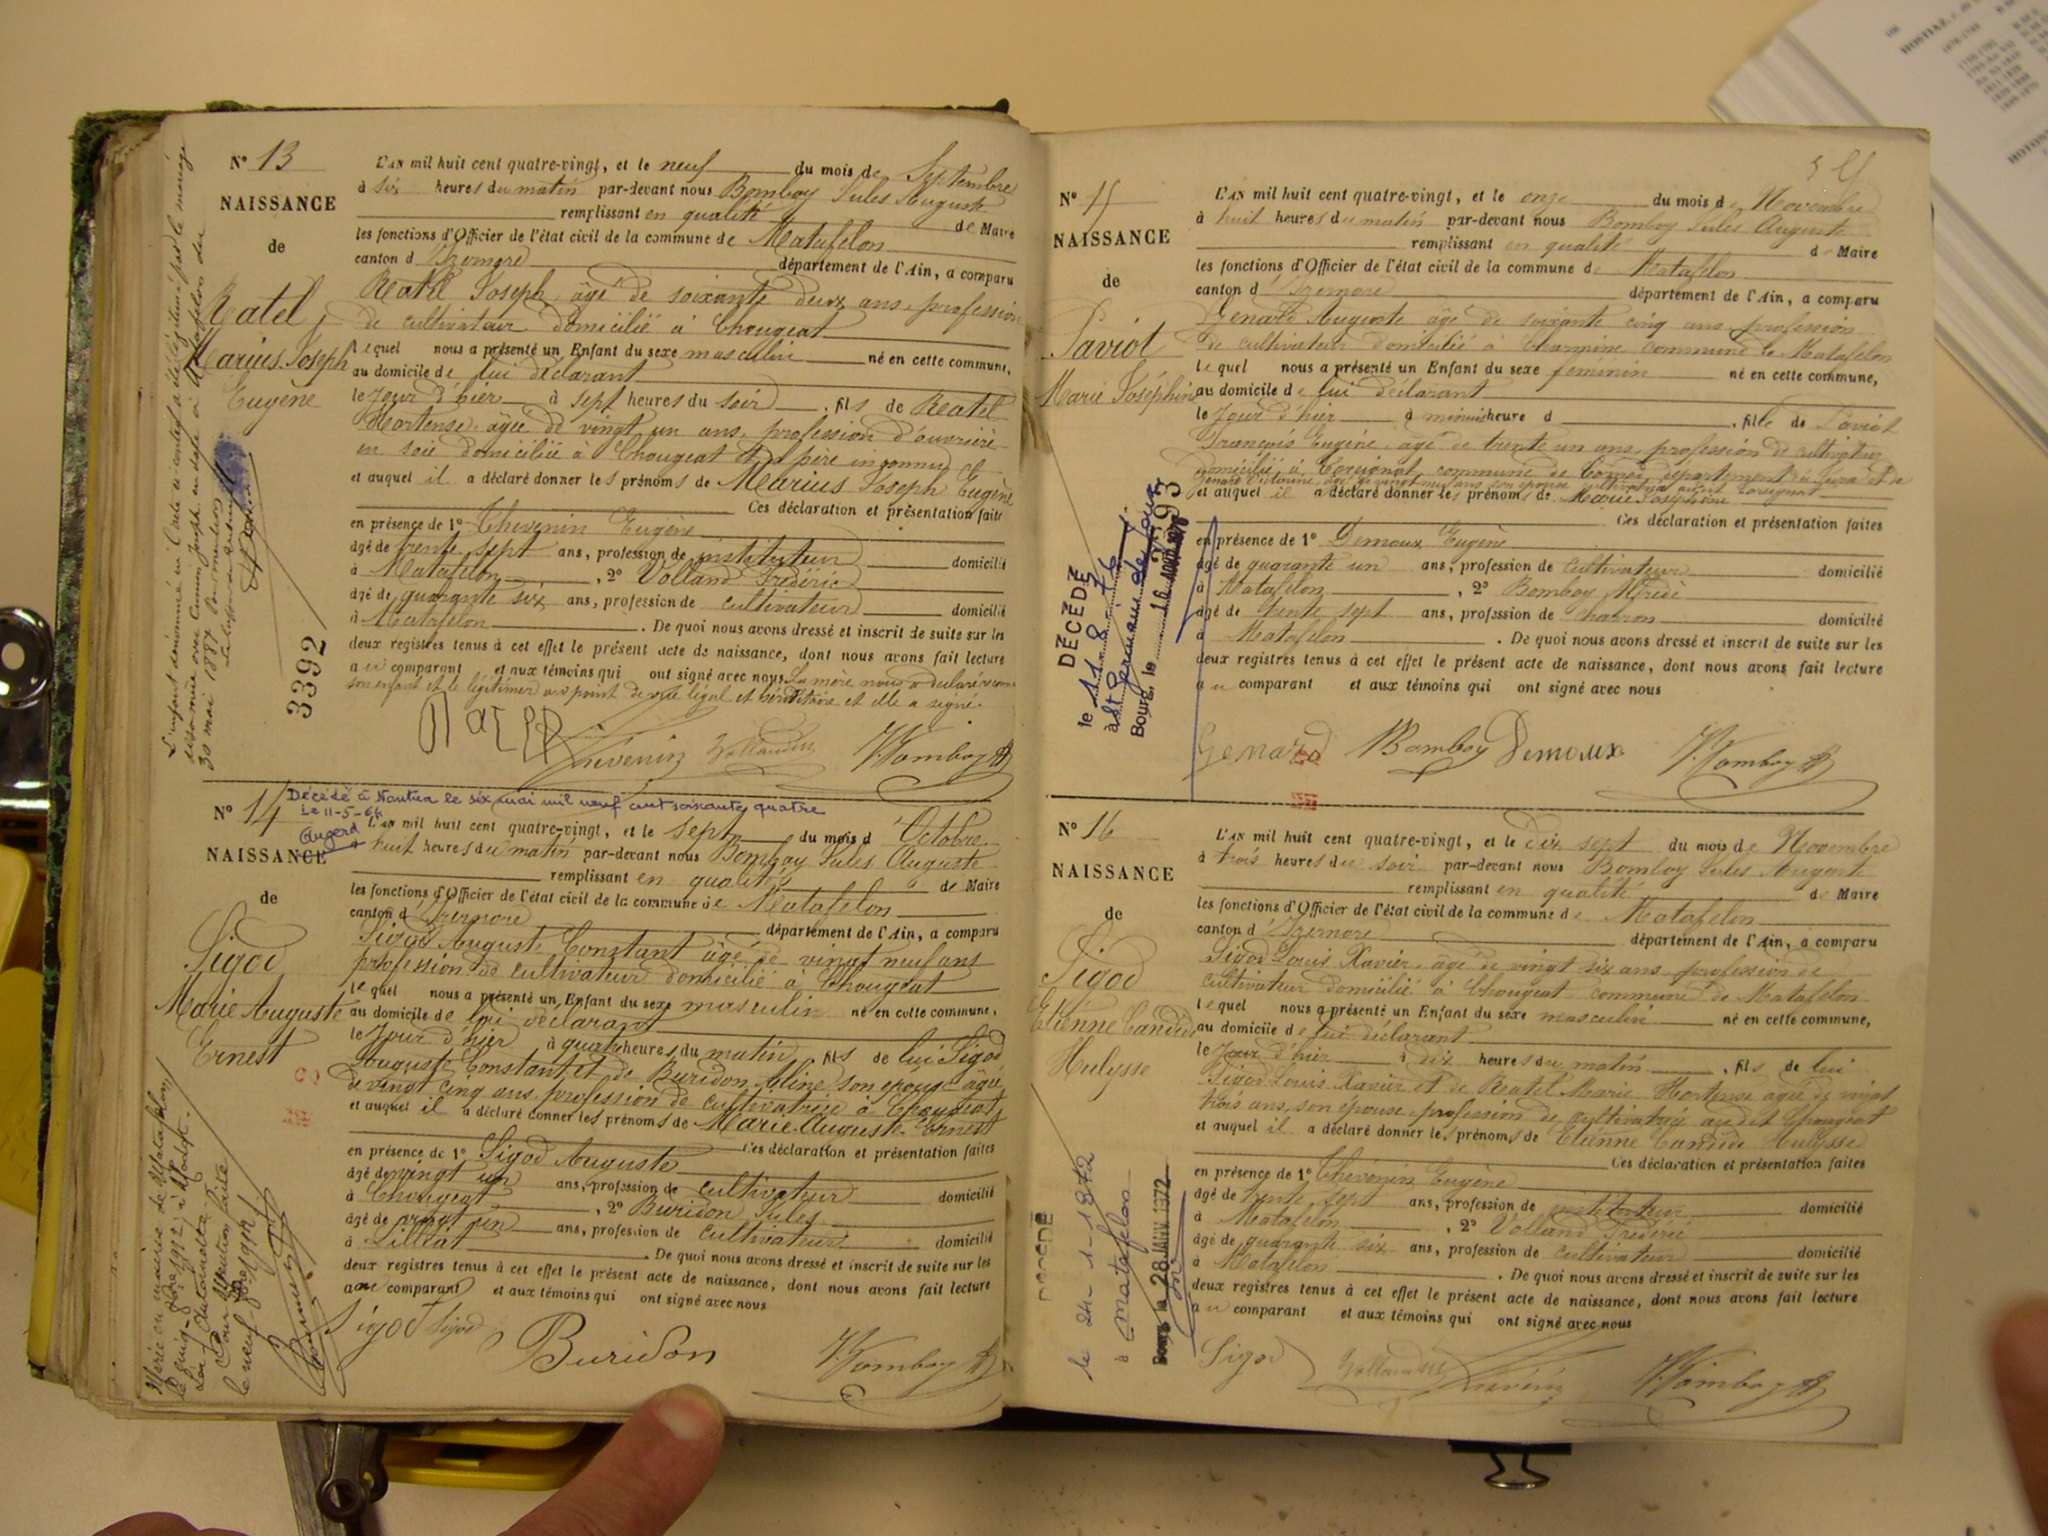 N° 13
NAISSANCE
de
Ratel
Marius Joseph
Eugène
L'AN mil huit cent quatre-vingt, et le neuf du mois de Septembre
à six heures du matin par-devant nous Bomboy Jules Auguste
remplissant en qualité de Maire
les fonctions d'Officier de l'état civil de la commune de Matafelon
canton d'Izernore département de l'Ain, a comparu
Ratel Joseph, âgé de soixante deux ans, profession
de cultivateur domicilié à Chougeat
lequel nous a présenté un Enfant du sexe masculin né en cette commune,
au domicile de lui déclarant
le Jour d'hier à sept heures du soir, fils de Ratel
Hortense, âgée de vingt un ans, profession d'ouvrière
en soie domiciliée à Chougeat et de père inconnu
et auquel il a déclaré donner les prénoms de Marius Joseph Eugène
Ces déclaration et présentation faites
en présence de 1° Thévenin Eugène
âgé de trente sept ans, profession de instituteur domicilié
à Matafelon, 2° Volland Frédéric
âgé de quarante six ans, profession de cultivateur domicilié
à Matafelon. De quoi nous avons dressé et inscrit de suite sur les
deux registres tenus à cet effet le présent acte de naissance, dont nous avons fait lecture
au comparant et aux témoins qui ont signé avec nous La mère nous a déclaré
son enfant et le légitimer au point de vue légal et héréditaire et elle a signé.
Thévenin
30 mai 1887
3392
N° 14
Décédé à Nantua le six mai mil neuf cent soixante quatre
Le 11-5-64
NAISSANCE
de
Sigod
Marie Auguste
Ernest
L'AN mil huit cent quatre-vingt, et le sept du mois d'Octobre
à huit heures du matin par-devant nous Bomboy Jules Auguste
remplissant en qualité de Maire
les fonctions d'Officier de l'état civil de la commune de Matafelon
canton d'Izernore département de l'Ain, a comparu
Sigod Auguste Constant âgé de vingt neuf ans
profession de cultivateur domicilié à Chougeat
lequel nous a présenté un Enfant du sexe masculin né en cette commune,
au domicile de lui déclarant
le Jour d'hier à quatre heures du matin fils de lui Sigod
Auguste Constant et de Buridon Aline son épouse âgée
de vingt cinq ans, profession de cultivatrice à Chougeat
et auquel il a déclaré donner les prénoms de Marie Auguste Ernest
Ces déclaration et présentation faites
en présence de 1° Sigod Auguste
âgé de vingt un ans, profession de cultivateur domicilié
à Chougeat, 2° Buridon Jules
âgé de vingt un ans, profession de cultivateur domicilié
à. De quoi nous avons dressé et inscrit de suite sur les
deux registres tenus à cet effet le présent acte de naissance, dont nous avons fait lecture
au comparant et aux témoins qui ont signé avec nous
Sigod Sigod Buridon
N° 15
NAISSANCE
de
Paviot
Marie Joséphine
L'AN mil huit cent quatre-vingt, et le onze du mois de Novembre
à huit heures du matin par-devant nous Bomboy Jules Auguste
remplissant en qualité de Maire
les fonctions d'Officier de l'état civil de la commune de Matafelon
canton d'Izernore département de l'Ain, a comparu
Genard Auguste âgé de soixante cinq ans, profession
de cultivateur domicilié à Charmine commune de Matafelon
lequel nous a présenté un Enfant du sexe féminin né en cette commune,
au domicile de lui déclarant
le Jour d'hier à minuit heure d, fille de Paviot
François Eugène, âgé de trente un ans, profession de cultivateur
et auquel il a déclaré donner les prénoms de Marie Joséphine
Ces déclaration et présentation faites
en présence de 1° Demoux Eugène
âgé de quarante un ans, profession de cultivateur domicilié
à Matafelon, 2° Bomboy Alfred
âgé de trente sept ans, profession de charron domicilié
à Matafelon. De quoi nous avons dressé et inscrit de suite sur les
deux registres tenus à cet effet le présent acte de naissance, dont nous avons fait lecture
au comparant et aux témoins qui ont signé avec nous
Genard Bomboy Demoux
DÉCÉDÉE
le 11 8 76
à St Germain de Joux
Bourg, le 16 AOUT 1976
N° 16
NAISSANCE
de
Sigod
Etienne Candide
Hulysse
L'AN mil huit cent quatre-vingt, et le dix sept du mois de Novembre
à trois heures du soir par-devant nous Bomboy Jules Auguste
remplissant en qualité de Maire
les fonctions d'Officier de l'état civil de la commune de Matafelon
canton d'Izernore département de l'Ain, a comparu
Sigod Louis Xavier, âgé de vingt six ans profession de
cultivateur domicilié à Chougeat commune de Matafelon
lequel nous a présenté un Enfant du sexe masculin né en cette commune,
au domicile de lui déclarant
le Jour d'hier à dix heures du matin, fils de lui
Sigod Louis Xavier et de Ratel Marie Hortense âgée de vingt
trois ans, son épouse, profession de cultivatrice audit Chougeat
et auquel il a déclaré donner les prénoms de Etienne Candide Hulysse
Ces déclaration et présentation faites
en présence de 1° Thévenin Eugène
âgé de trente sept ans, profession de instituteur domicilié
à Matafelon, 2° Volland Frédéric
âgé de quarante six ans, profession de cultivateur domicilié
à Matafelon. De quoi nous avons dressé et inscrit de suite sur les
deux registres tenus à cet effet le présent acte de naissance, dont nous avons fait lecture
au comparant et aux témoins qui ont signé avec nous
Sigod Thévenin
DÉCÉDÉ
le 24-1-1972
à Matafelon
Bourg, le 28 JANV 1972